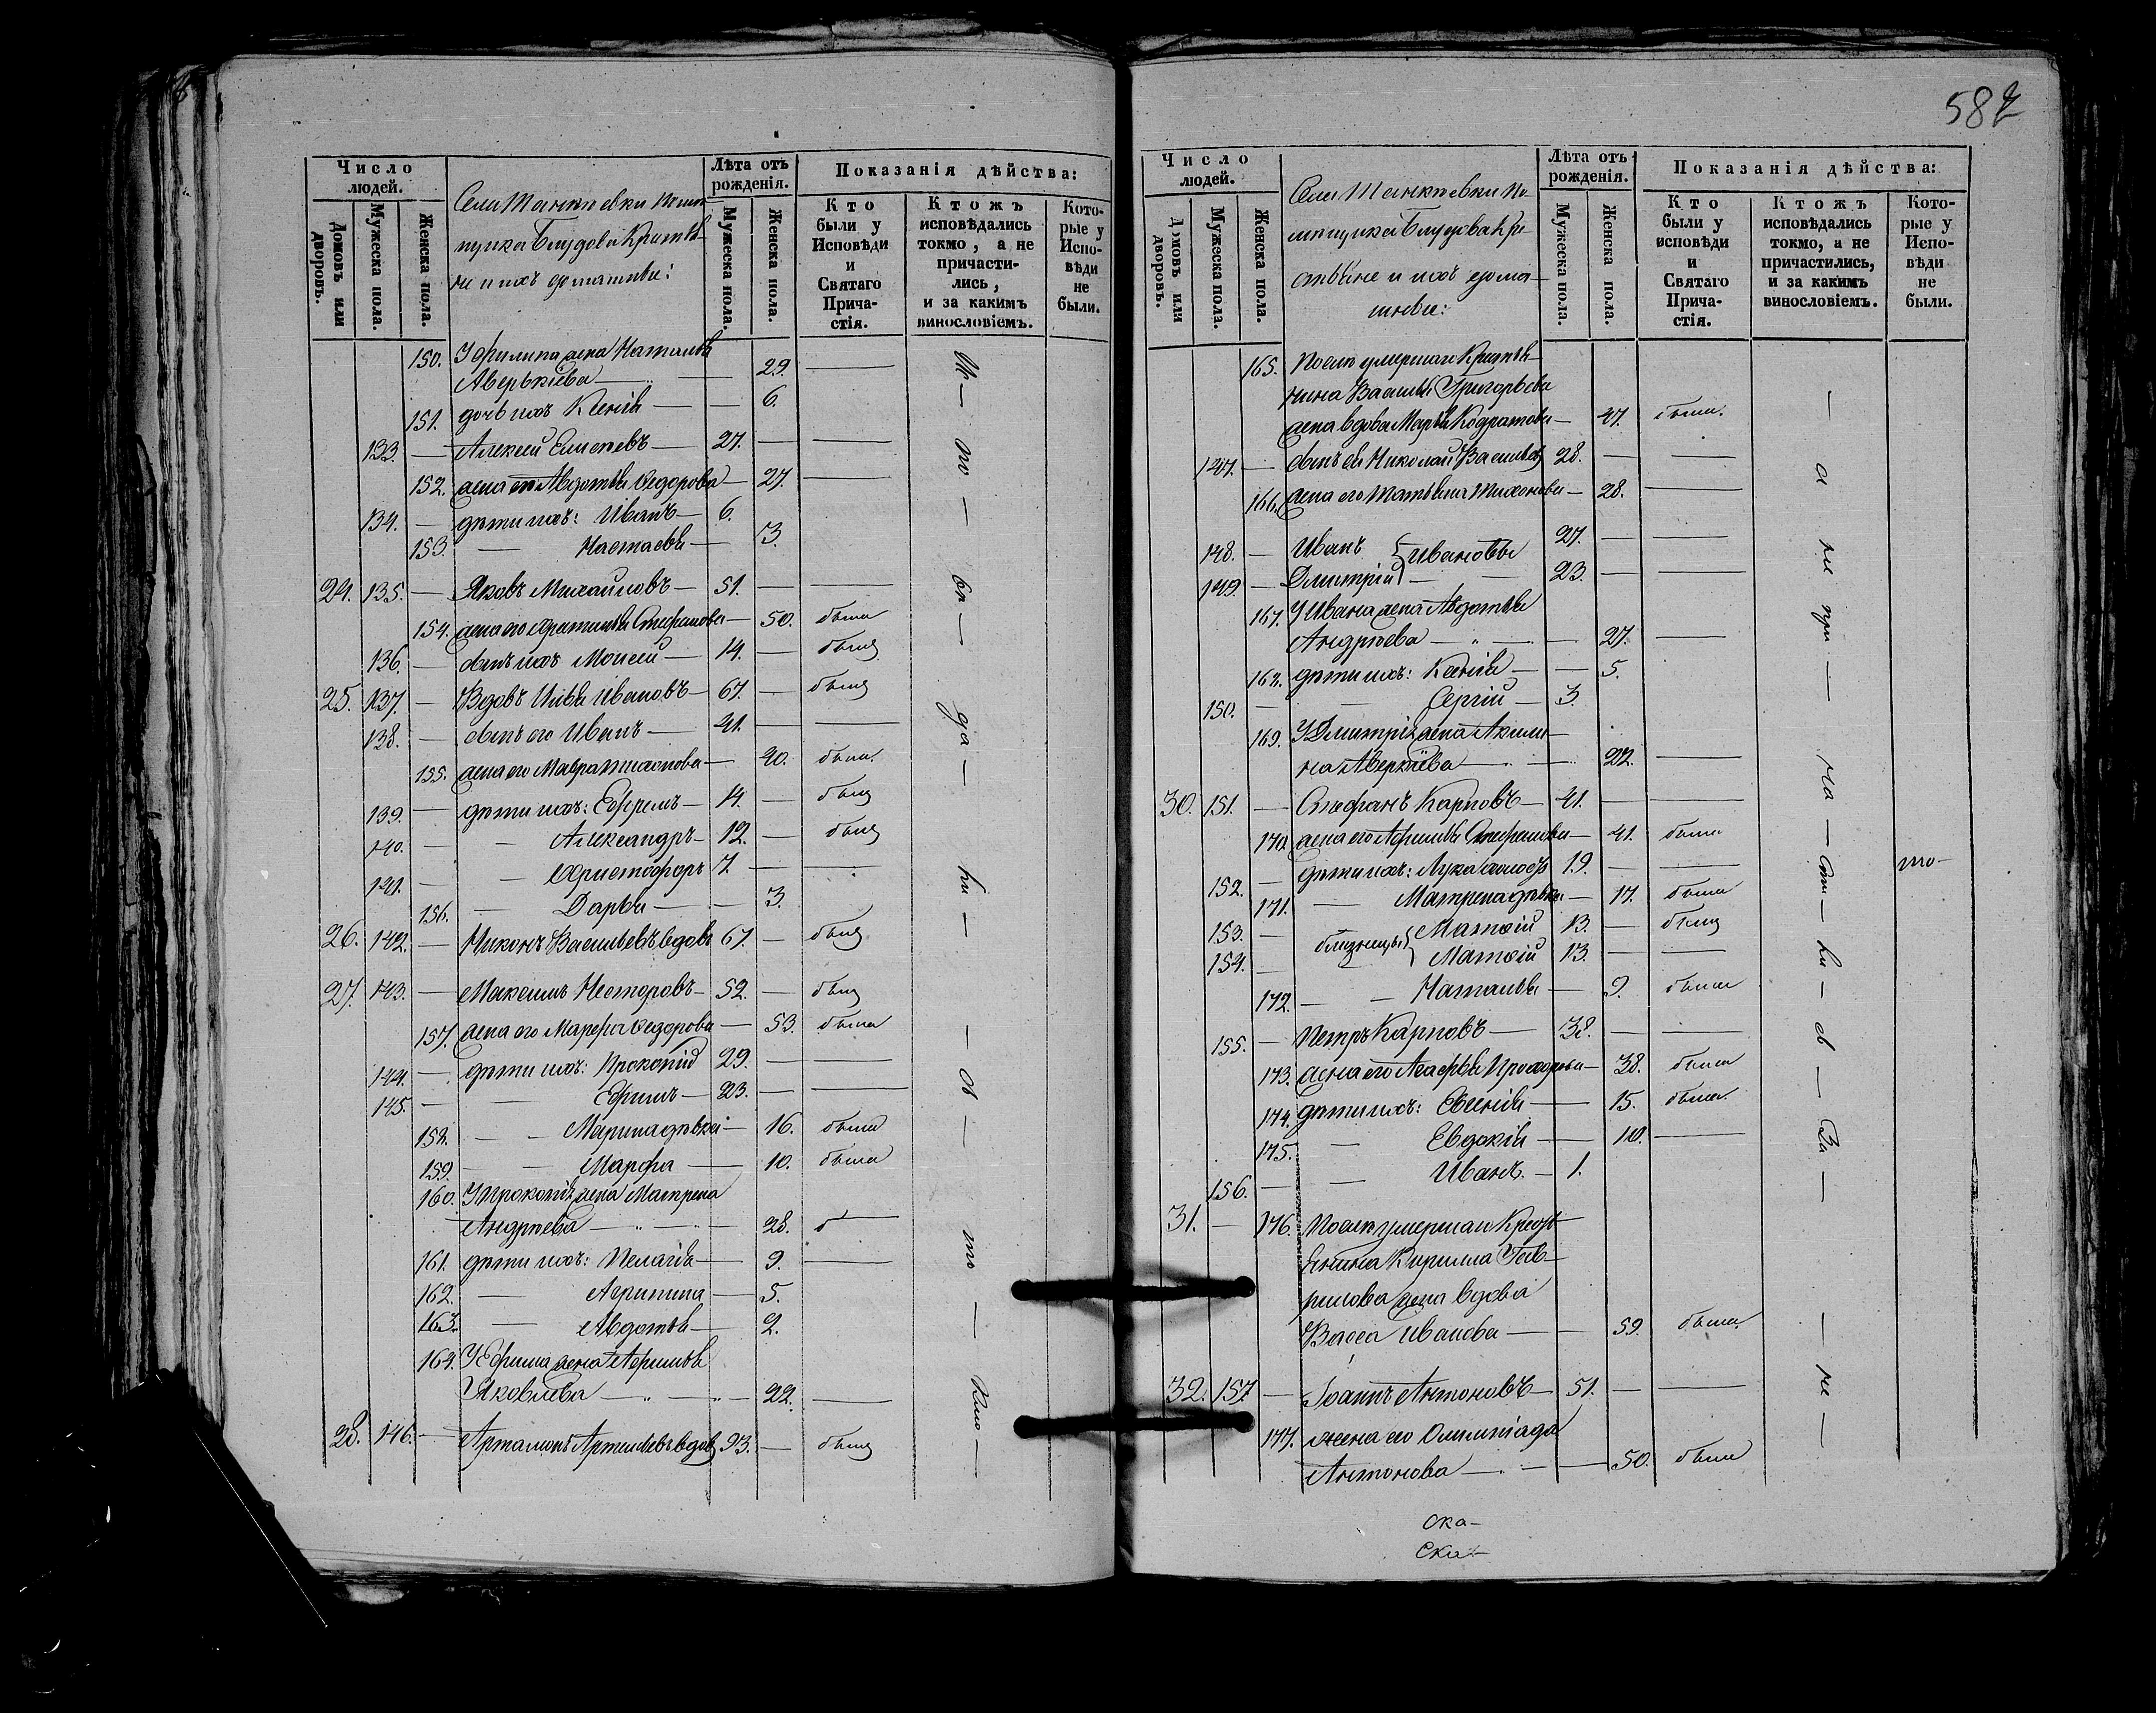 582
Число людей.
Домовъ или дворовъ.
Мужеска пола.
Женска пола.
Села Танкѣевки помѣ-
щика Блудова Крестья-
не и ихъ домашніе:
Лѣта отъ рожденія.
Мужеска пола.
Женска пола.
Показанія дѣйства:
Кто были у Исповѣди и Святаго Прича-стія.
Ктожъ исповѣдались токмо, а не причасти-лись, и за какимъ винословіемъ.
Кото-рые у Испо-вѣди не были.
150. У Филипа жена Наталья
Аверькіева — 29. —
151. дочь ихъ Ксенія — 6.
133. — Алексей Елисеевъ — 27. — —
152. жена его Авдотья Федорова — 27. —
134. — дѣти ихъ: Иванъ — 6.
153. — Настасья — 3.
24. 135. — Яковъ Михайловъ — 51. — —
154. жена его Стефанова — 50. была
136. — сынъ ихъ Моисей — 14. — былъ
25. 137. — Вдовъ Илья Ивановъ — 67. — былъ
138. — сынъ его Иванъ — 41. — —
155. жена его Мавра — 40. была
139. — дѣти ихъ: Ефремъ — 14. — былъ
140. — — Александръ — 12. — былъ
141. — — Христофоръ 7. — —
156. — Дарья — — 3.
26. 142. — Никонъ Васильевъ вдовъ 67. — былъ
27. 143. — Максимъ Несторовъ — 52. — былъ
157. жена его Марфа Федорова — 53. была
144. — дѣти ихъ: Прокопій 29. — —
145. — — Ефимъ — 23. — —
158. — — Марина дѣвка — 16. была
159. — — Марфа — 10. была
160. У Прокопія жена Матрена
Андреева — 28. —
161. дѣти ихъ: Пелагія — 9. —
162. — Агрипина — 5.
163. — Авдотья — 2.
164. У Ефима жена Афимья
Яковлева — 22. —
28. 146. — Артамонъ вдовъ 93. — былъ
Число людей.
Домовъ или дворовъ.
Мужеска пола.
Женска пола.
Села Танкѣевки по-
мѣщика Блудова Кре-
стьяне и ихъ дома-
шніе:
Лѣта отъ рожденія.
Мужеска пола.
Женска пола.
Показанія дѣйства:
Кто были у исповѣди и Святаго Прича-стія.
Ктожъ исповѣдались токмо, а не причастились, и за какимъ винословіемъ.
Кото-рые у Испо-вѣди не были.
165. Послѣ умершаго Крестья-
нина Василья Григорьева
жена вдова Марья Кодратова — 47. была.
147. — сынъ ея Николай Васильевъ 28. — —
166. жена его Татьяна Тихонова — 28. —
148. — Иванъ } Ивановы 27. — —
149. — Дмитрій } — 23. — —
167. У Ивана жена Авдотья
Андреева — 27. —
168. дѣти ихъ: Ксенія — — 5.
150. — — Сергій — 3.
169. У Дмитрія жена Акили-
на Аверкіева — 22. —
30. 151. — Стефанъ Карповъ — 41. — —
170. жена его Афимья Стефанова — 41. была
152. — дѣти ихъ: Лука холостъ 19. — —
171. — Матрена дѣвка — 17. была
153. — близнецы { Матѳій 13. — былъ
154. — Матѳій 13. — —
172. — — Наталья — 9. была
155. — Петръ Карповъ — 38. — —
173. жена его Агафья Прохорова — 38. была
174. дѣти ихъ: Евгенія — — 15. была
175. — Евдокія — 10. —
156. — — Иванъ. — 1.
31. — 176. Послѣ умершаго Кресть-
янина Кирилла Гав-
рилова жена вдова
Васса Иванова — — 59. была
32. 157. — Іоаннъ Антоновъ — 51. — —
177. жена его Олимпіада
Антонова — 50. была
ска-
Ска-